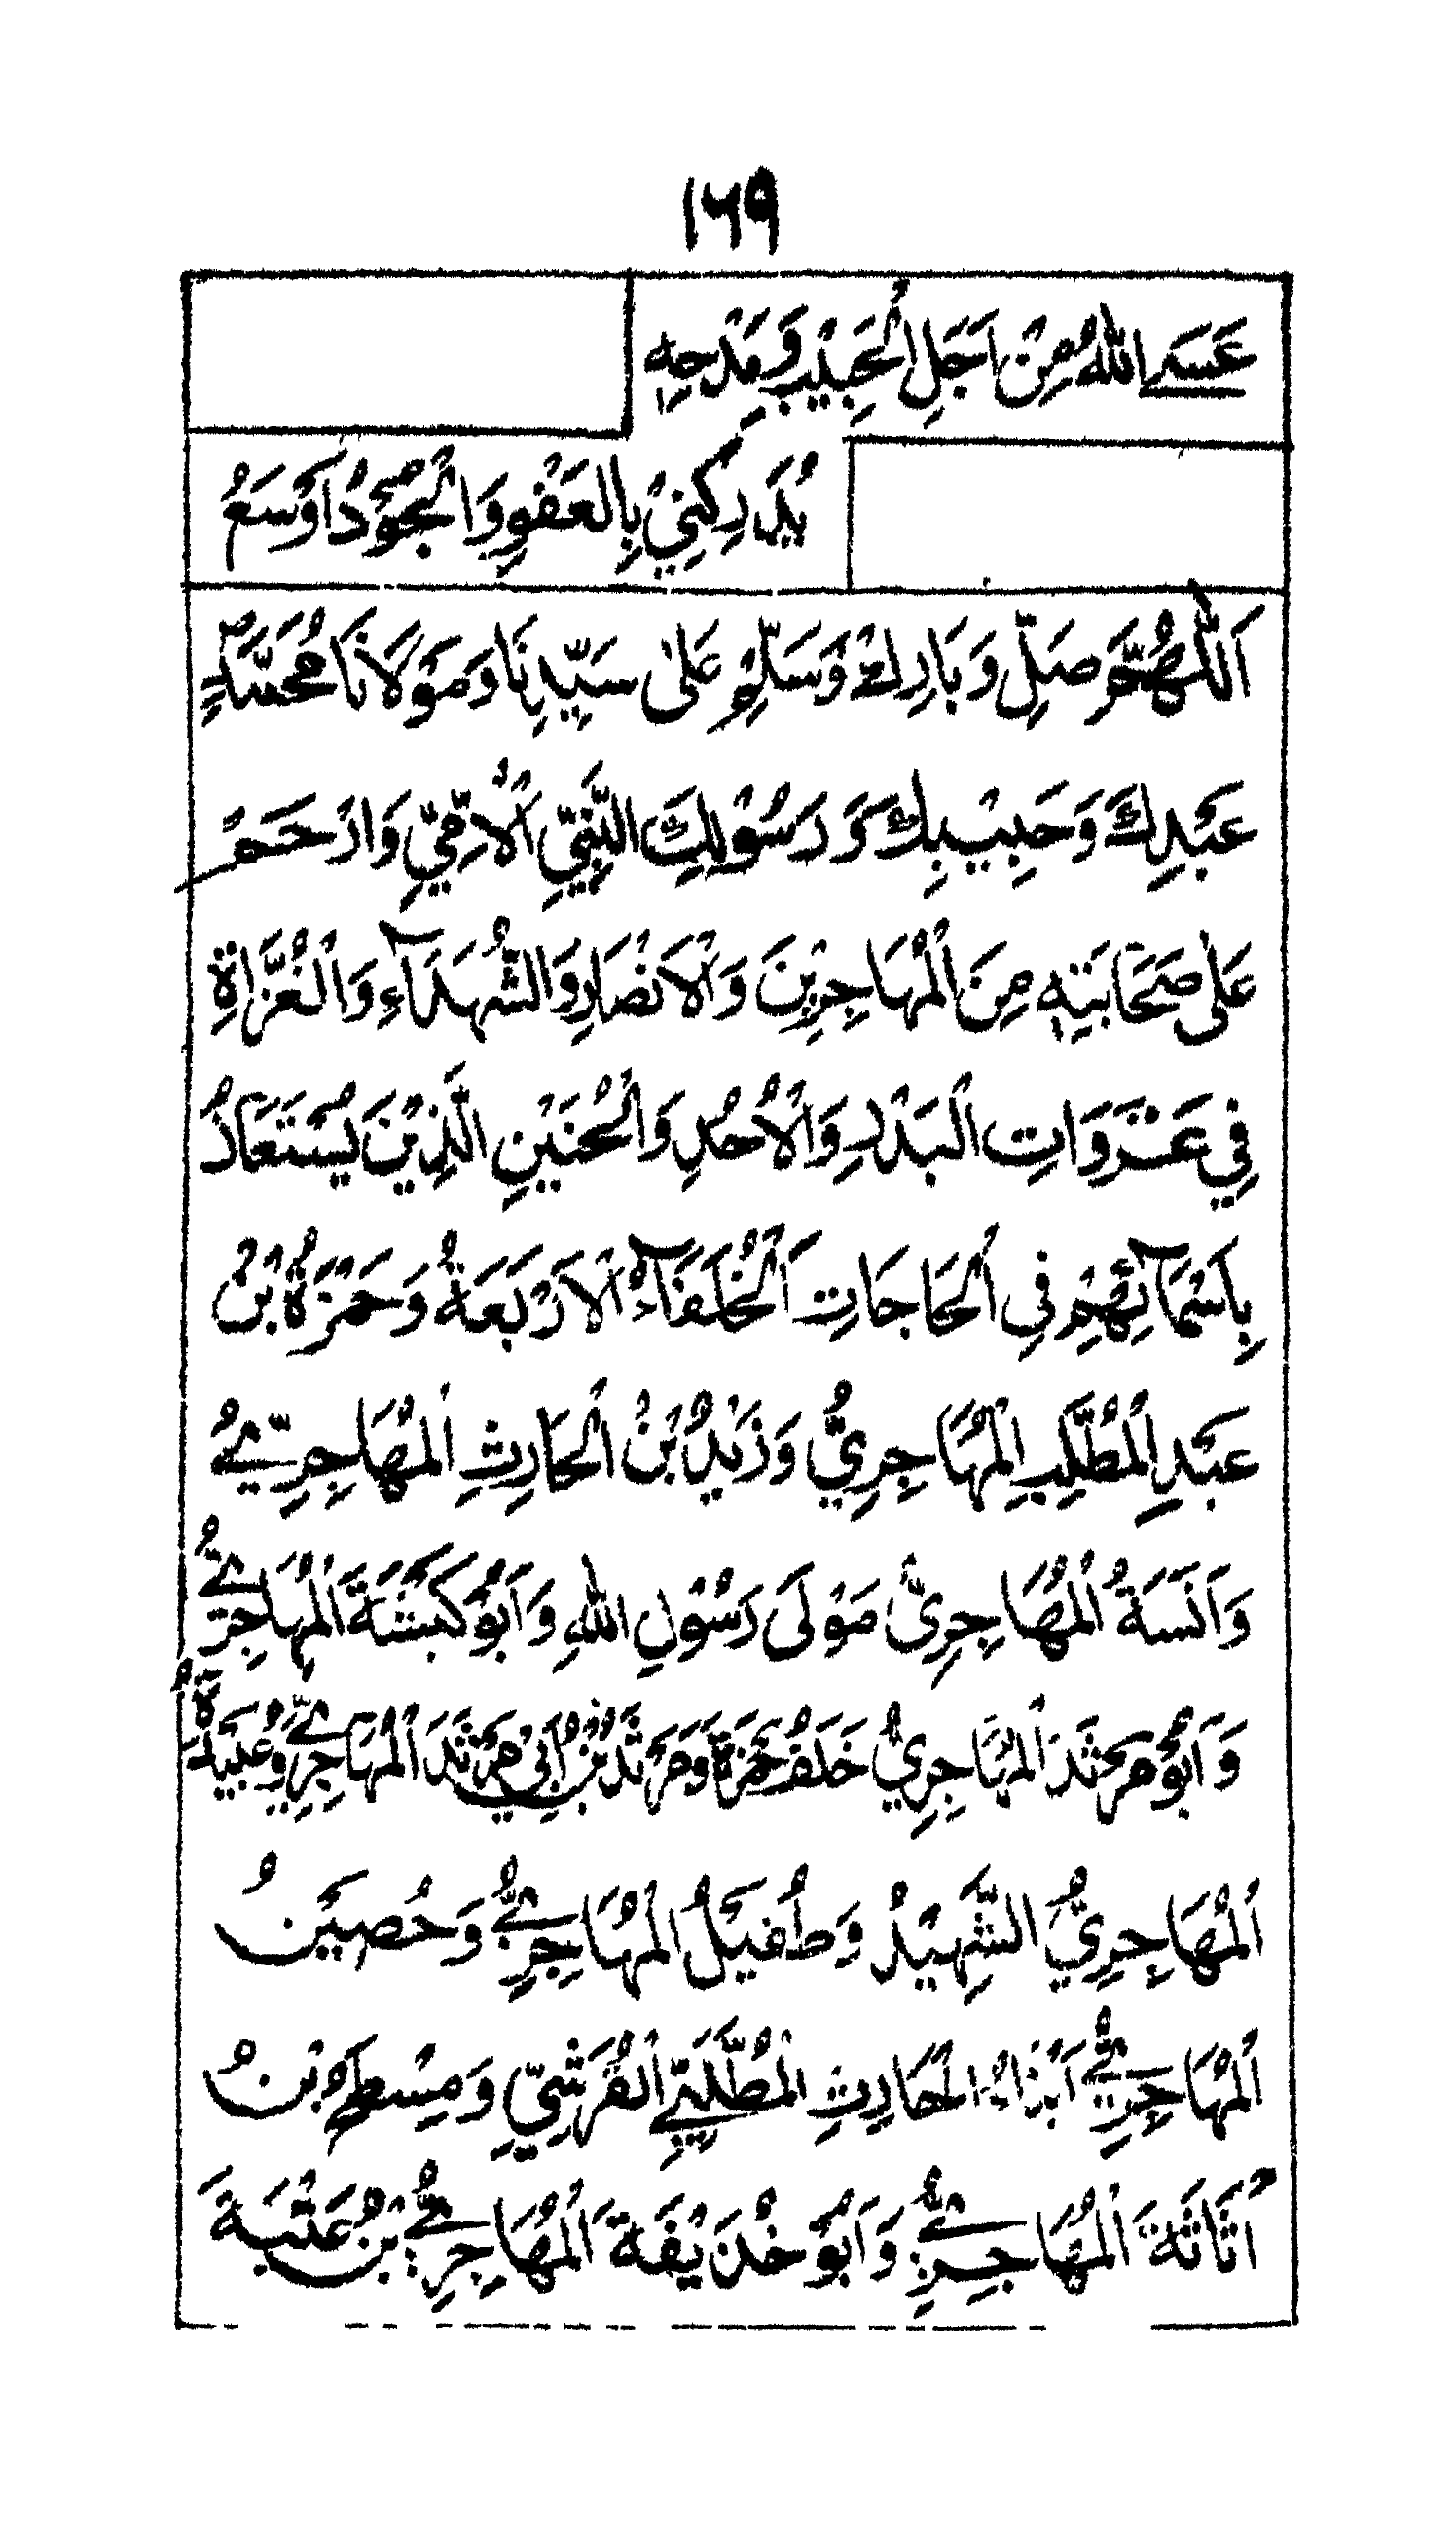 ١٦٩
عَسَى اللّٰهُ مِنْ اَجَلِ الْحَبِيْبِ وَمَدْحِهٖ
يُدَرِكُنِيْ بِالْعَفْوِ وَالْجُوْدُ اَوْسَعُ
اَللّٰهُمَّ صَلِّ وَبَارِكْ وَسَلِّمْ عَلٰى سَيِّدِنَا وَمَوْلَانَا مُحَمَّدٍ
عَبْدِكَ وَحَبِيْبِكَ وَرَسُوْلِكَ النَّبِيِّ الْاُمِّيِّ وَارْحَمْ
عَلٰى صَحَابَتِهٖ مِنَ الْمُهَاجِرِيْنَ وَالْاَنْصَارِ وَالشُّهَدَآءِ وَالْغُزَّاةِ
فِي غَزَوَاتِ الْبَدْرِ وَالْاُحُدِ وَالْحُنَيْنِ الَّذِيْنَ يُسْتَعَاذُ
بِاَسْمَآئِهِمْ فِى الْحَاجَاتِ اَلْخُلَفَآءُ الْاَرْبَعَةُ وَحَمْزَةُ بْنُ
عَبْدِ الْمُطَّلِبِ الْمُهَاجِرِيُّ وَزَيْدُ بْنُ الْحَارِثِ الْمُهَاجِرِيُّ
وَاَنَسَةُ الْمُهَاجِرِيُّ مَوْلَى رَسُوْلِ اللّٰهِ وَاَبُوْ كَبْشَةَ الْمُهَاجِرِيُّ
وَاَبُوْ مَرْثَدَ الْمُهَاجِرِيُّ خَلَفُ حَمْزَةَ وَمَرْثَدُ بْنُ اَبِيْ مَرْثَدَ الْمُهَاجِرِيُّ وَعُبَيْدَةُ
الْمُهَاجِرِيُّ الشَّهِيْدُ وَطُفَيْلُ الْمُهَاجِرِيُّ وَحُصَيْنُ
الْمُهَاجِرِيُّ اَبْنَاءُ الْحَارِثِ الْمُطَّلَبِيِّ الْقُرَشِيِّ وَمِسْطَحُ بْنُ
اُثَاثَةَ الْمُهَاجِرِيُّ وَاَبُوْ حُذَيْفَةَ الْمُهَاجِرِيُّ بْنُ عُتْبَةَ